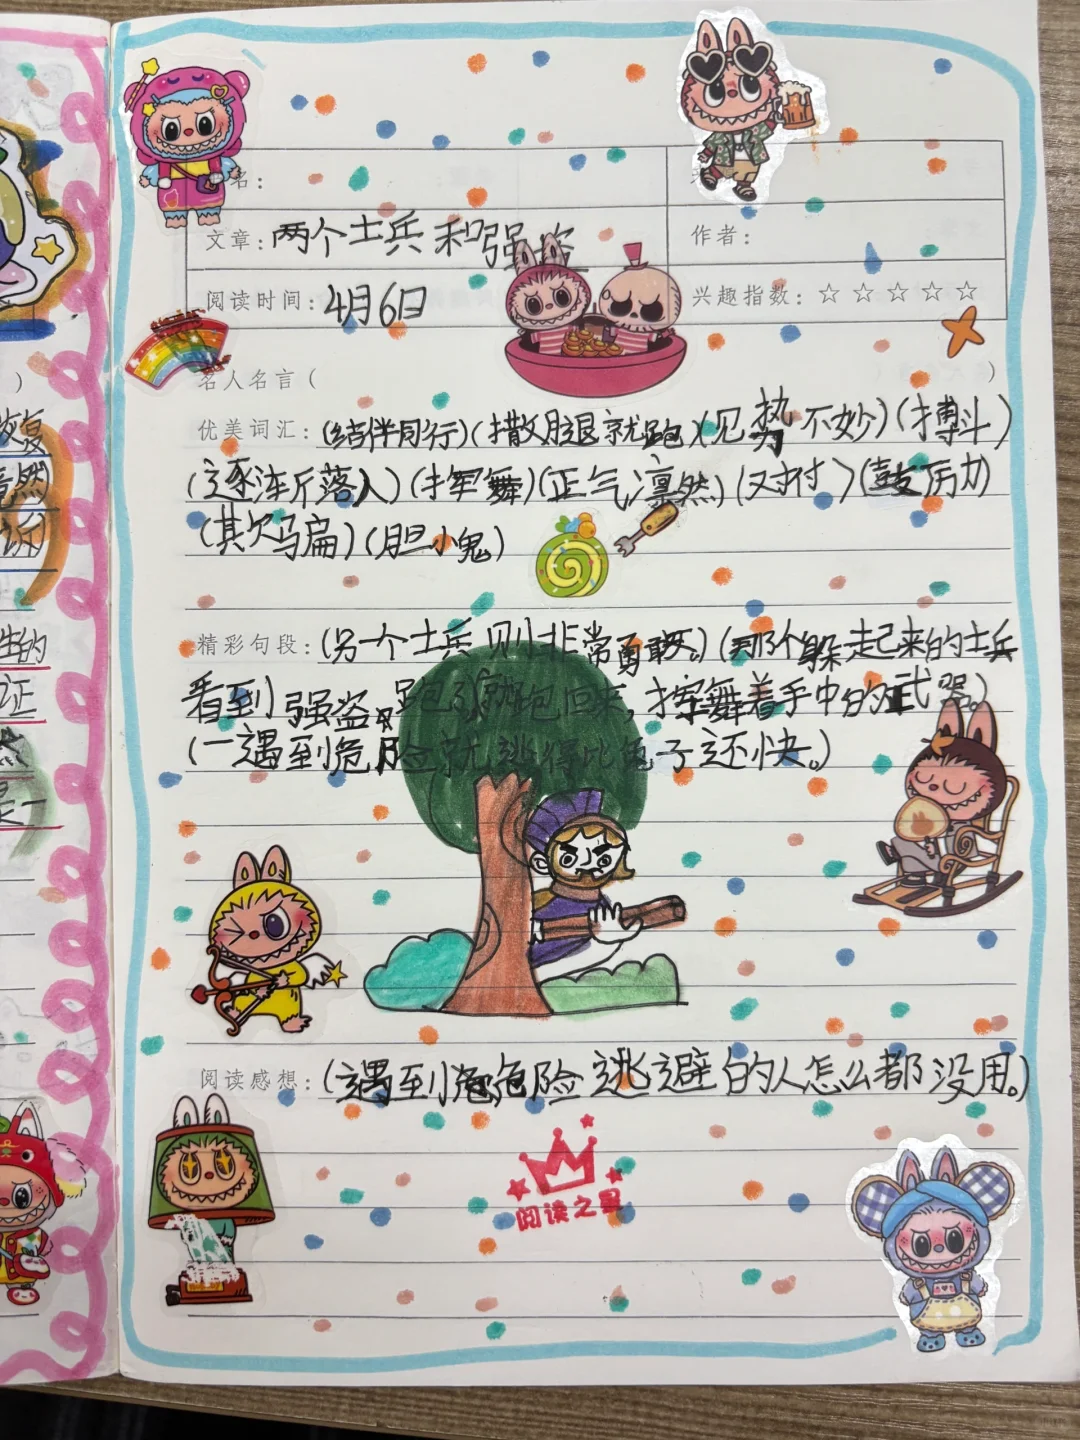 名：
文章：两个士兵和强盗
作者：
阅读时间：4月6日
兴趣指数：☆☆☆☆☆
名人名言（ ）
优美词汇：（结伴同行）（撒腿就跑）（见势不妙）（搏斗）
（逐渐落入）（挥舞）（正气凛然）（对付）（鼓厉）
（其欠马扁）（胆小鬼）
精彩句段：（另一个士兵则非常勇敢。）（那个躲起来的士兵
看到强盗跑了就跑回来，挥舞着手中的武器。）
（一遇到危险就逃得比兔子还快。）
阅读感想：（遇到危危险逃避的人怎么都没用。）
阅读之星
恢复
竟然
诉
生的
证